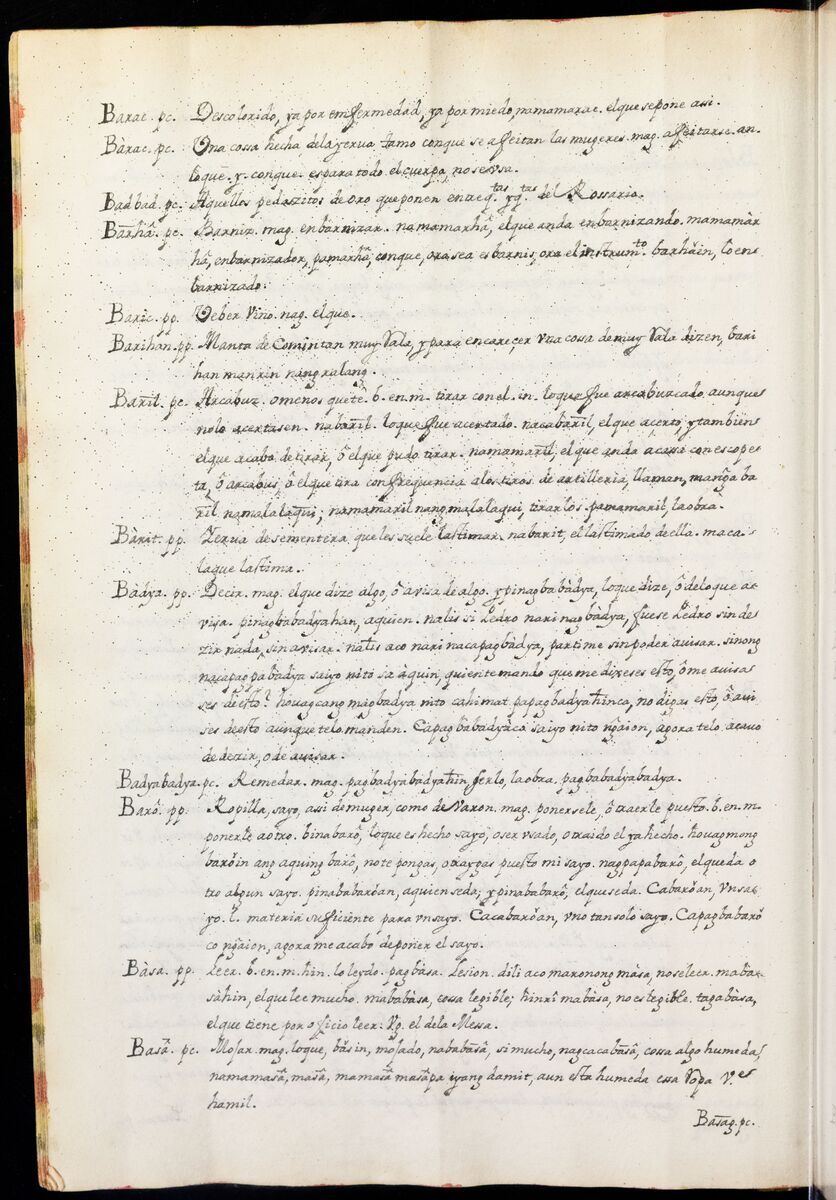 Barac. pc. Descolorido, ya por emfermedad, ya por miedo, namamarac. el que se pone assi.
Bàrac. pc. Vna cossa hecha dela yerua, tamo conque se affeitan las mugeres. mag. affeitarse. an.
loque. y. conque. es para todo el cuerpo, no se vsa.
Badbad. pc. Aquellos pedaszitos de oro que ponen entre q.tas y q.tas del Rossario.
Barhâ. pc. Barniz. mag. enbarnizar. namamarhâ, el que anda enbarnizando. mamamàr
hâ, enbarnizador, pamarhâ, conque, ora sea es barnis, ora el instrum.to barhâin, lo en
barnizado.
Baric. pp. Veber Vino. nag. elque.
Barihan. pp. Manta de Comintan muy Rala, y para encareçer vna cossa de muy Rala dizen, bari
han manrin nang ralang.
Baril. pc. Arcabuz. o menos que tê. b. en. m. tirar con el. in. loque fue arcabuzeado aunque
nolo acertasen. nabaril. loque fue acertado. nacabaril, el que acerto, y tambien
elque acabo de tirar, ô el que pudo tirar. namamaril, el que anda a casa con escope
ta, ô arcabus, o el que tira con frequencia a los tiros de artilleria, llaman, manga ba
ril na malalaqui, namamaril nang malalaqui, tirarlos. pamamaril, la obra.
Bàrit. pp. Zerua de sementera, que les suele lastimar. nabarit, el lastimado de ella. maca.
laque lastima.
Bàdya. pp. Decir. mag. el que dize algo, ô avisa de algo. ypinagbabàdya, loque dize, ô delo que a
visa. pinagbabadyahan, aquien. nalis si Pedro nari nagbàdya, fuese Pedro sin de
zir nada, sin avisar. nalis aco nari nacapagbàdya, partime sin poder auisar. sinong
nagpapabàdya saiyo nitó sa àquin, quien te mando que me dixeses esto, ô me auisa
ses de esto? houag cang magbadya nito cahimat papagbadyahin ca, no digas esto, ô aui
ses de esto aunque telo manden. Capagbabadyà co saiyo nito ngaion, agora telo acauo
de dezir, o de auisar.
Badyabadya. pc. Remedar. mag. pagbadyabadyahin, serlo, la obra. pagbabadyabadya.
Barô. pp. Ropilla, sayo, assi de muger, como de Varon. mag. ponersele, ô traerle puesto. b. en. m.
ponerle a otro. binabarô, loque es hecho sayo, o ser vsado, o traido el ya hecho. houag mong
baròin ang aquing barô, no te pongas, o traygas puesto mi sayo. nagpapabarô, el que da o
tro algun sayo. pinababaròan, aquien se da, ypinababarô, el que se da. Cabaròan, vn sa
yo. l. materia sufficiente para vn sayo. Cacabaròan, vno tan solo sayo. Capagbabarô
co ngaion, agora me acabó de poner el sayo.
Bàsa. pp. Leer. b. en. m. hin. lo leydo. pagbàsa. Lesion. dili aco maronong màsa, no se leer. mabà
sàhin, el que lee mucho. mababàsa, cossa legible; hinri mabàsa, no es legible. tagabàsa,
el que tiene por officio leer. Vg. el dela Messa.
Basâ. pc. Mojar. mag. loque, bàsin, mojado, nababasâ, si mucho, nagcacabasâ, cossa algo humeda,
namamasâ, masâ, mamasâ masâ pa iyang damit, aun esta humeda essa Ropa V.es
hamil.
Basag. pc.